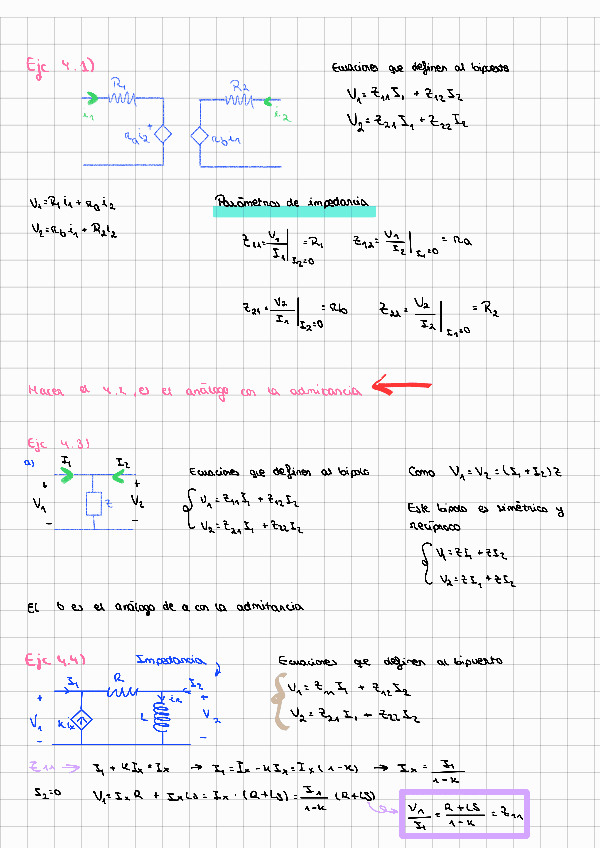 Ejc 4.1)
R1
R2
i1
i2
Ra i2
Rb i1
+
Ecuaciones que definen al bipuerto
V1 = Z11 I1 + Z12 I2
V2 = Z21 I1 + Z22 I2
V1 = R1 i1 + Ra i2
V2 = Rb i1 + R2 i2
Parámetros de impedancia
Z11 = V1/I1 | I2=0 = R1
Z12 = V1/I2 | I1=0 = Ra
Z21 = V2/I1 | I2=0 = Rb
Z22 = V2/I2 | I1=0 = R2
Hacer el 4.2, es el análogo con la admitancia
Ejc 4.3)
a)
I1
I2
+
+
V1
Z
V2
-
-
Ecuaciones que definen al bipolo
V1 = Z11 I1 + Z12 I2
V2 = Z21 I1 + Z22 I2
Como V1 = V2 = (I1 + I2) Z
Este bipolo es simétrico y
recíproco
V1 = Z I1 + Z I2
V2 = Z I1 + Z I2
El b es el análogo de a con la admitancia
Ejc 4.4)
Impedancia
I1
R
I2
+
ix
+
V1
k ix
L
V2
-
-
Ecuaciones que definen al bipuerto
V1 = Z11 I1 + Z12 I2
V2 = Z21 I1 + Z22 I2
Z11 → I1 + k Ix = Ix → I1 = Ix - k Ix = Ix (1-k) → Ix = I1/(1-k)
I2=0
V1 = Ix R + Ix LS = Ix · (R+LS) = I1/(1-k) (R+LS)
V1/I1 = (R+LS)/(1-k) = Z11